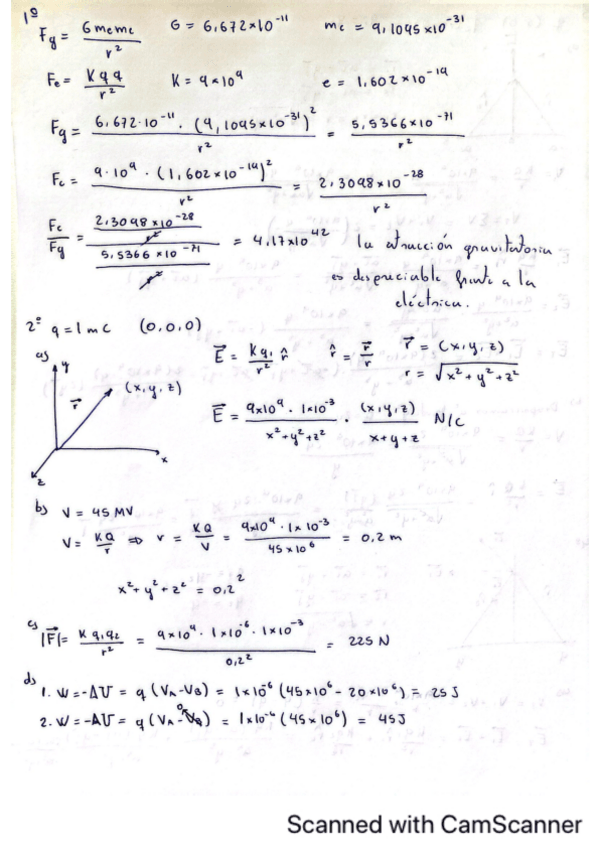 1º
Fg = G me me / r²   G = 6,672×10⁻¹¹   me = 9,1095×10⁻³¹
Fe = K q q / r²   K = 9×10⁹   e = 1,602×10⁻¹⁹
Fg = 6,672·10⁻¹¹ · (9,1095×10⁻³¹)² / r² = 5,5366×10⁻⁷¹ / r²
Fe = 9·10⁹ · (1,602×10⁻¹⁹)² / r² = 2,3098×10⁻²⁸ / r²
Fe / Fg = (2,3098×10⁻²⁸ / r²) / (5,5366×10⁻⁷¹ / r²) = 4,17×10⁴² la atracción gravitatoria
es despreciable frente a la
eléctrica.
2º q = 1 mC (0,0,0)
a) y (x,y,z) r⃗ x z
E⃗ = K q₁ / r² r̂   r̂ = r⃗ / r   r⃗ = (x,y,z)
r = √x²+y²+z²
E⃗ = 9×10⁹ · 1×10⁻³ / x²+y²+z² · (x,y,z) / x+y+z N/C
b) V = 45 MV
V = KQ / r ⇒ r = KQ / V = 9×10⁹ · 1×10⁻³ / 45×10⁶ = 0,2 m
x²+y²+z² = 0,2²
c) |F⃗| = K q₁q₂ / r² = 9×10⁹ · 1×10⁻⁶ · 1×10⁻³ / 0,2² = 225 N
d)
1. W = -ΔU = q (VA-VB) = 1×10⁻⁶ (45×10⁶ - 20×10⁶) = 25 J
2. W = -ΔU = q (VA-VB) = 1×10⁻⁶ (45×10⁶) = 45 J
Scanned with CamScanner